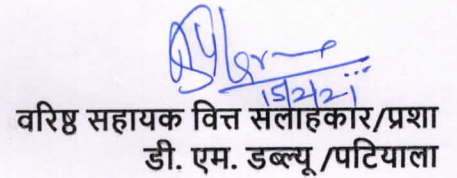 15/2/21
वरिष्ठ सहायक वित्त सलाहकार/प्रशा
डी. एम. डब्ल्यू /पटियाला